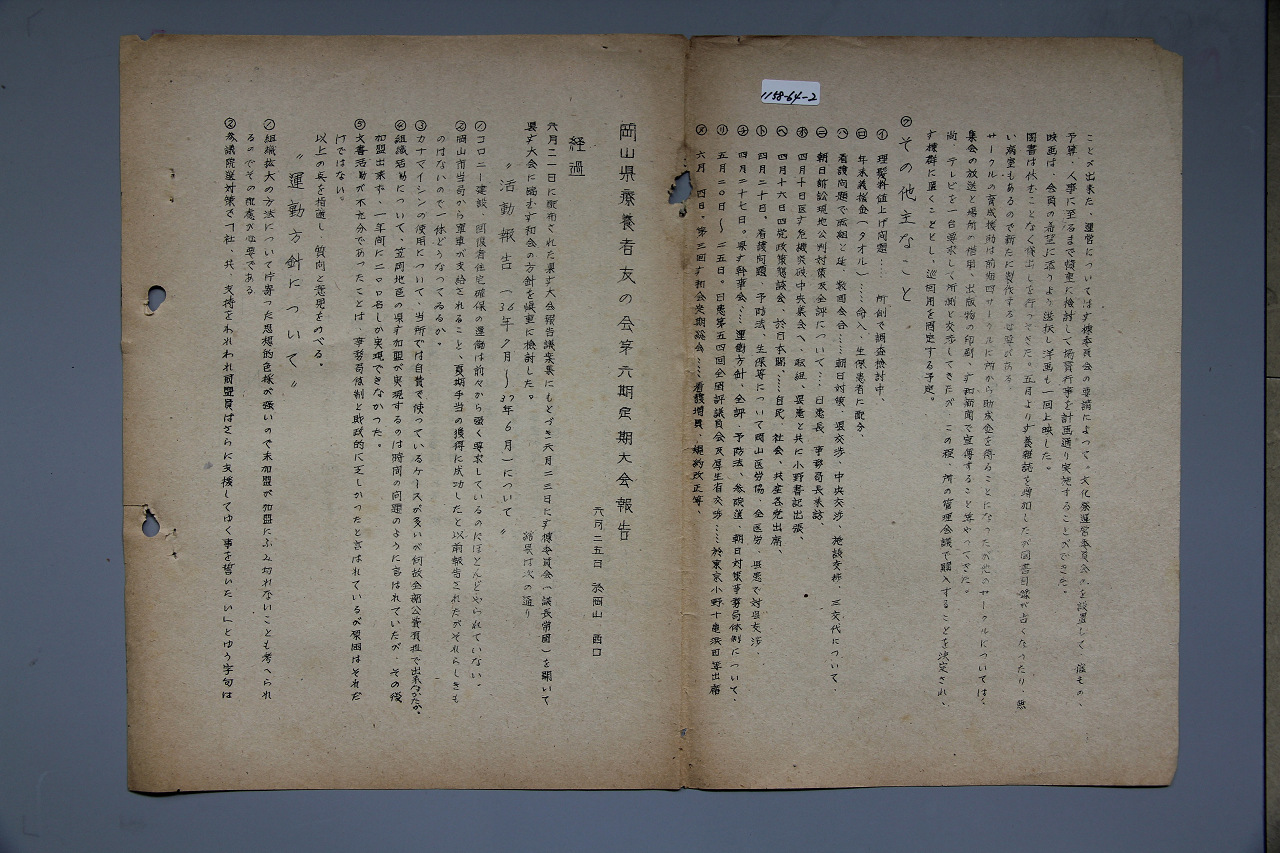 1158-64-2
ことが出来た、運営についてはす様委員会の要請によって。文化祭運営委員会かを設置して、催もの、
予算、人事に至るまで慎重に検討して備賞行事を計画通り実施することができた。
映画は、会員の希望に添うよう選択し洋画も一回上映した。
図書は休むことなく貸出しを行ってきた。五月よりす養雑誌を増加したが図書目録が古くなったり、無
い病室もあるので新たに製作する必要がある。
サークルの育成援助は前回四サークルに所から助成金を得ることになったが他のサークルについては、
集会の放送と場所の借用、出版物の印刷、す和新聞で宣伝すること等やってきた。
尚、テレビを一台要求して所側と交渉してきたが、この程、所の管理会議で購入することを決定され、
す様群に置くこととし、巡回用を固定する予定。
㋐その他主なこと
㋑理髪料値上げ問題……所側で調査検討中、
㋺年末義援金(タオル)……寄入、生保患者に配分、
㋩看護問題で医組と是、数回会合……朝日対策、県交渉、中央交渉、施設支持、三交代について、
㋥朝日訴訟現地公判対策及全評について……日患長、事務局長来訪、
㋭四月十日医す危機突破中央集会へ、医組、県患と共に小野書記出張、
㋬四月十六日四党政策懇談会、於日本閣……自民、社会、共産各党出席、
㋣四月二十日、看護問題、予防法、生保等について岡山医労協、全医労、県患で対県交渉、
㋠四月二十七日。県す幹事会……運動方針、全評、予防法、参院選、朝日対策事務局体制について、
㋷五月二〇日〜二五日。日患第五四回全国評議員会及厚生省交渉……於東京小野十亀浜田等出席
㋦六月 四日。第三回す和会定期総会……看護増員、規約改正等、
岡山県療養者友の会第六期定期大会報告
六月二五日 於岡山 西口
経過
六月二一日に配布された県す大会報告議案集にもとづき六月二三日にす様委員会(議長常国)を開いて
県す大会に臨むす和会の方針を慎重に検討した。 結果は次の通り
〝活動報告(36年7月〜37年6月)について〟
①コロニー建設、回復者住宅確保の運動は前々から強く要求しているのにほとんどやられていない。
②岡山市当局から軍車が支給されること、夏期手当の獲得に成功したと以前報告されたがそれらしきも
のはないので一体どうなってるか。
③カナマイシンの使用について、当所では自費で使っているケースが多いが何故全額公費負担で出来なかったか。
④組織活動について、笠岡地区の県す加盟が実現するのは時間の問題のように言はれていたが、その後
加盟出来ず、一年間に二〇〇名しか実現できなかった。
⑤文書活動が不充分であったことは、事務局体制と財政的に乏しかったと言はれているが原因はそれだ
けではない。
以上の点を指適し、質問と意見をのべる。
〝運動方針について〟
①組織拡大の方法について片寄った思想的色採が強いので未加盟が加盟にふみ切れないことも考へられ
るのでその配慮が必要である
②参議院選対策で「社、共、支持をわれわれ同盟員はさらに支援してゆく事を誓いたい」とゆう字句は